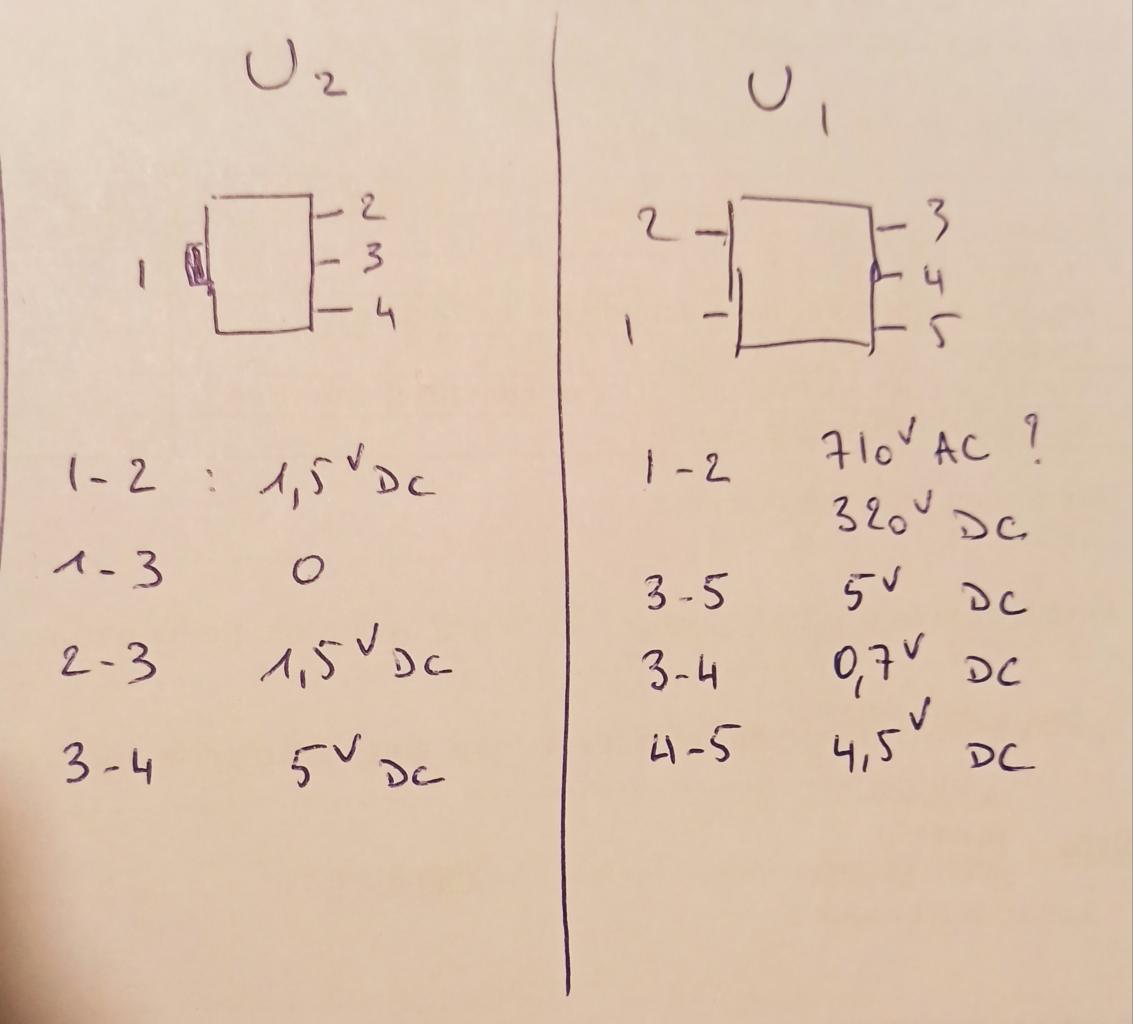 U2
2
3
1
4
1-2 : 1,5V DC
1-3 0
2-3 1,5V DC
3-4 5V DC
U1
2
3
4
1
5
1-2 710V AC ?
320V DC
3-5 5V DC
3-4 0,7V DC
4-5 4,5V DC